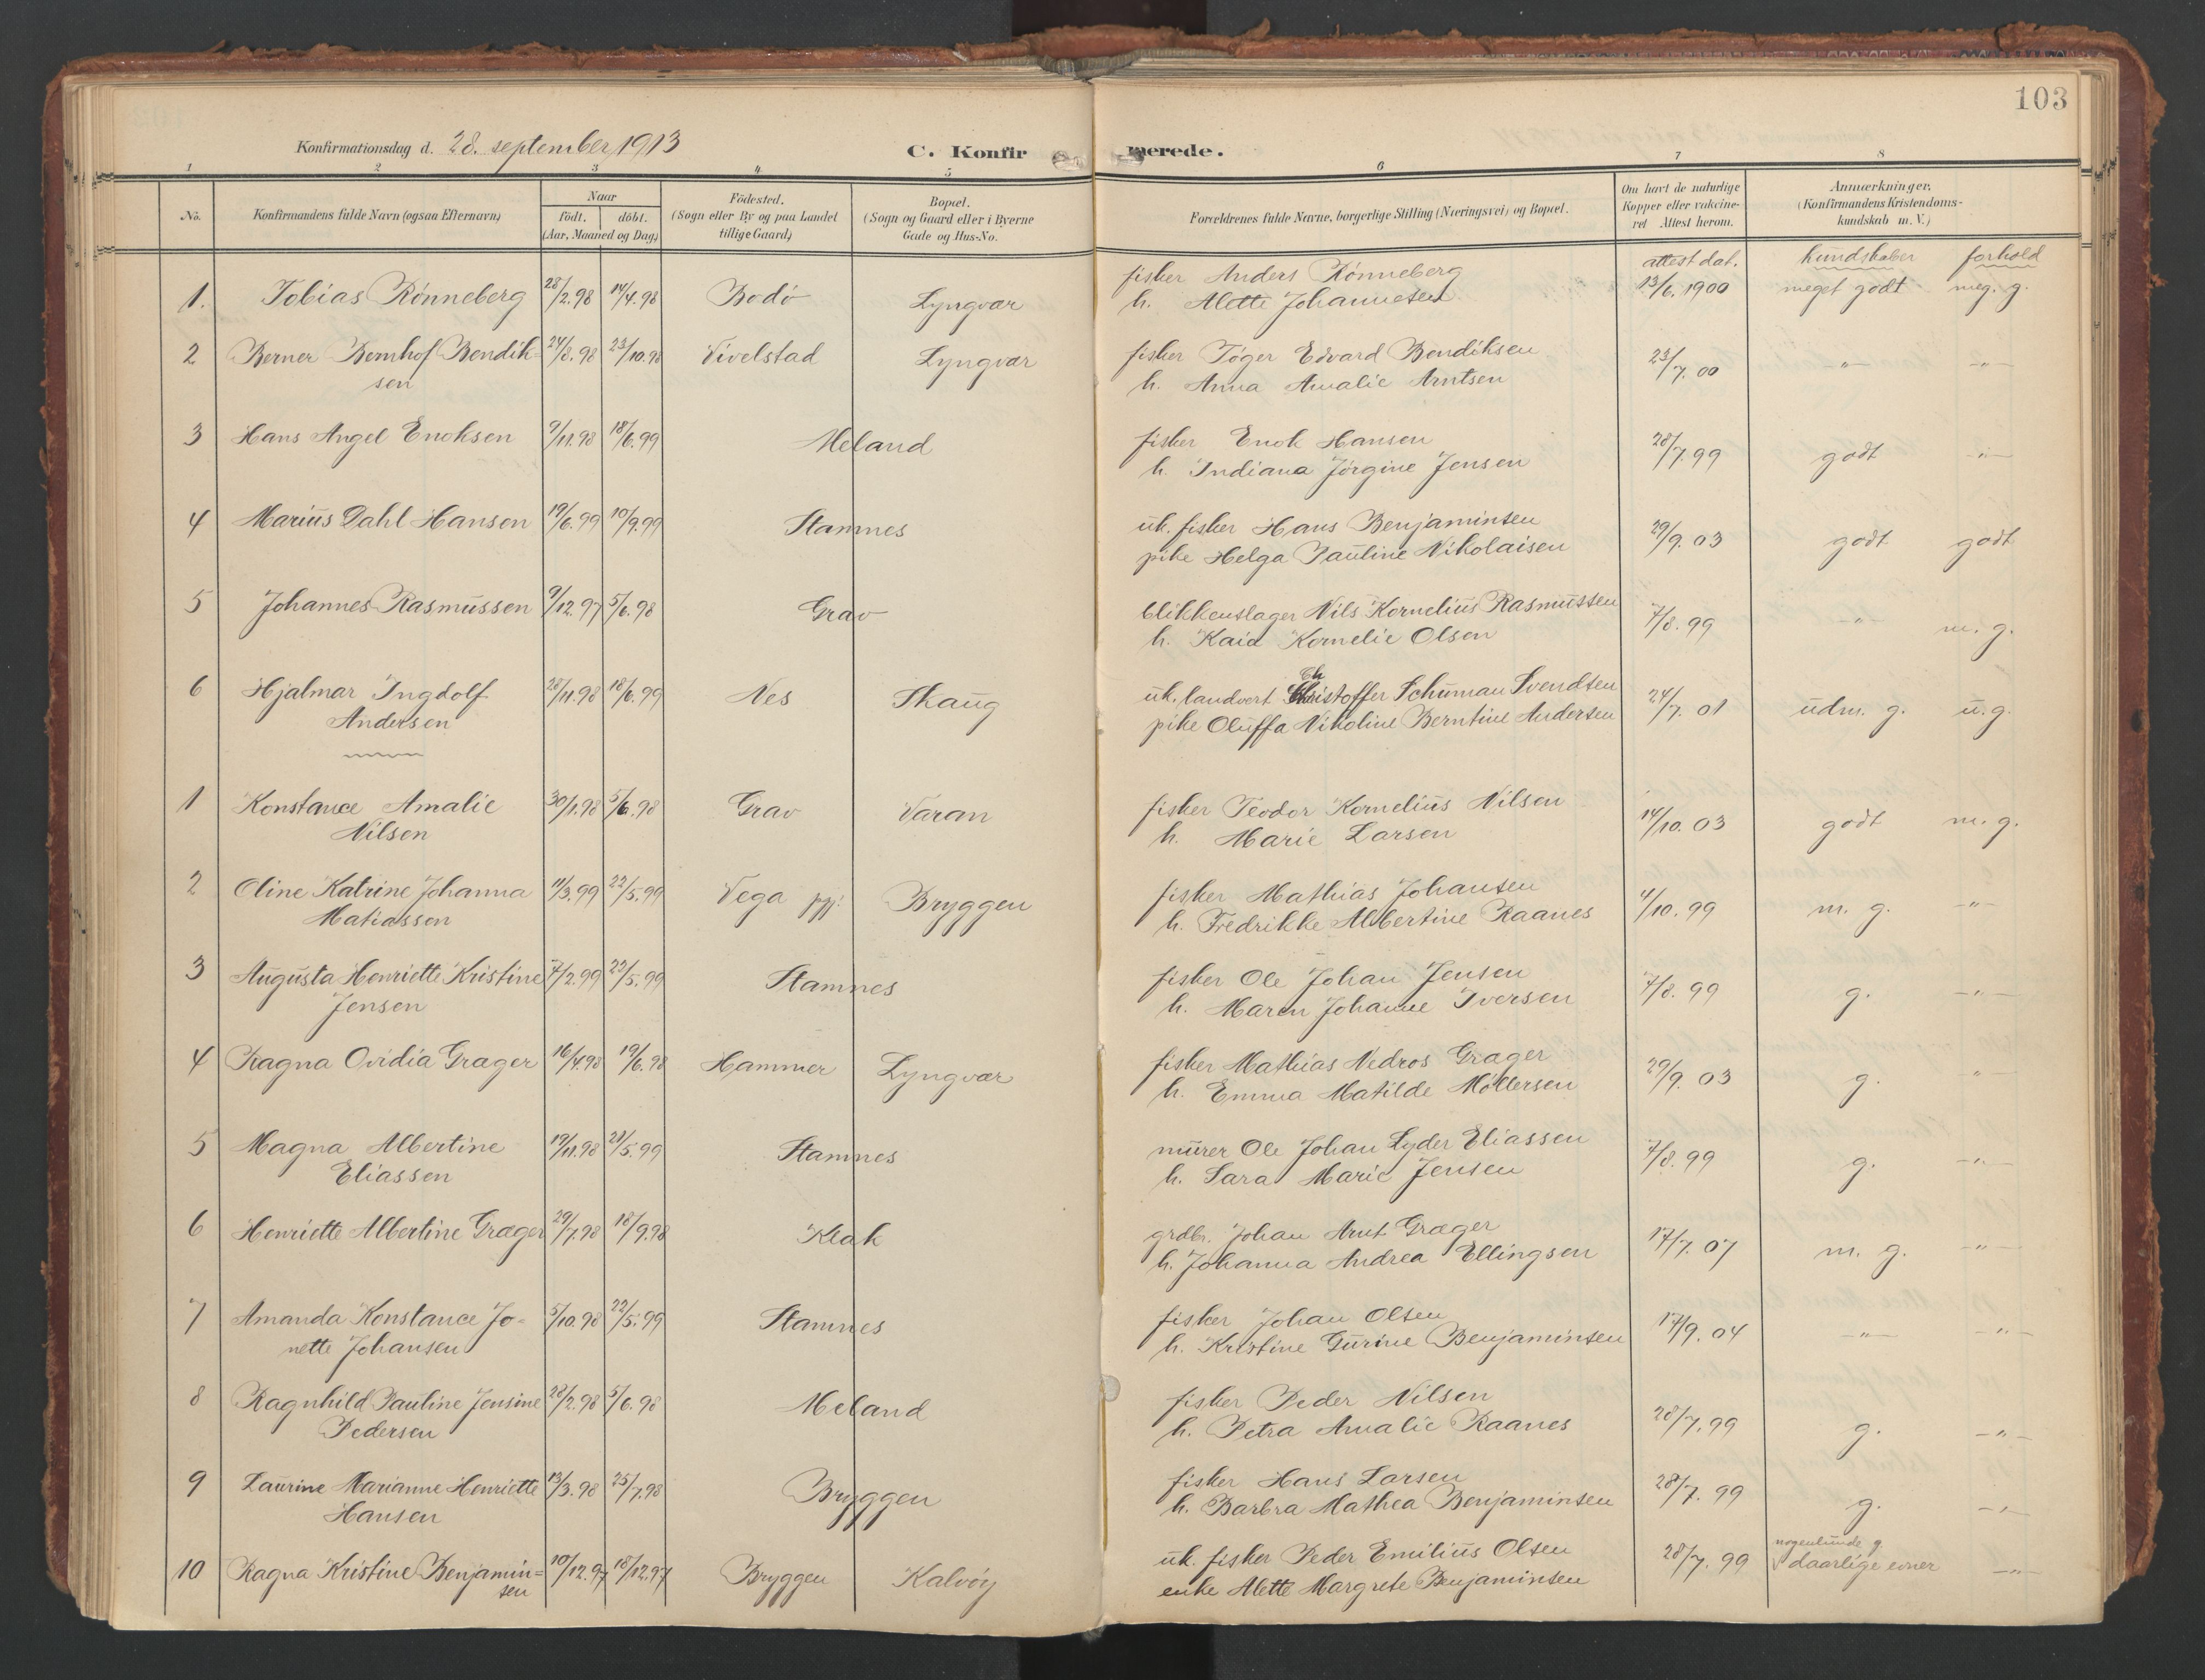 103
Konfirmationsdag d. 28. september 1913 C. Konfirmerede.
1 2 3 4 5 6 7 8
No. Konfirmandens fulde Navn (ogsaa Efternavn) Naar födt. döbt. (Aar, Maaned og Dag) Födested. (Sogn eller By og paa Landet tillige Gaard) Bopæl. (Sogn og Gaard eller i Byerne Gade og Hus-No. Forældrenes fulde Navne, borgerlige Stilling (Næringsvei) og Bopæl. Om havt de naturlige Kopper eller vakcineret Attest herom. Anmærkninger. (Konfirmandens Kristendomskundskab m. V.)
attest dat. kundskaber forhold
1. Tobias Rönneberg 28/2.98 14/4.98 Bodö Lyngvær fisker Anders Rönneberg 13/6.1900 meget godt meg. g.
h. Alette Johannesen
2 Berner Bernhof Bendik- 24/8.98 23/10.98 Vivelstad Lyngvær fisker Töger Edvard Bendiksen 23/7.00 -"- -"-
sen h. Anna Amalie Arntsen
3 Hans Angel Enoksen 9/11.98 18/6.99 Meland fisker Enok Hansen 28/7.99 godt -"-
h. Indiana Jörgine Jensen
4 Marius Dahl Hansen 19/6.99 10/9.99 Stamnes uk. fisker Hans Benjaminsen 29/9.03 godt godt
pike Helga Pauline Nikolaisen
5 Johannes Rasmussen 9/12.97 5/6.98 Grav blikkenslager Nils Kornelius Rasmussen 7/8.99 -"- m. g.
h. Kaia Kornelie Olsen
6 Hjalmar Ingdolf 28/11.98 18/6.99 Nes Skaug uk. landvert Christoffer Schuman Svendsen 24/7.01 udm. g. u. g.
Andersen pike Oluffa Nikoline Berntine Andersen
1 Konstance Amalie 30/1.98 5/6.98 Grav Varan fisker Teodor Kornelius Nilsen 14/10.03 godt m. g.
Nilsen h. Marie Larsen
2 Oline Katrine Johanna 11/3.99 22/5.99 Vega pgj. Bryggen fisker Mathias Johansen 4/10.99 m. g. -"-
Matiassen h. Fredrikke Albertine Raanes
3 Augusta Henriette Kristine 7/2.99 22/5.99 Stamnes fisker Ole Johan Jensen 7/8.99 g. -"-
Jensen h. Maren Johanne Iversen
4 Ragna Ovidia Græger 16/4.98 19/6.98 Hammer Lyngvær fisker Mathias Nedros Græger 29/9.03 g. -"-
h. Emma Matilde Möllersen
5 Magna Albertine 19/11.98 21/5.99 Stamnes murer Ole Johan Lyder Eliassen 7/8.99 g. -"-
Eliassen h. Sara Marie Jensen
6 Henriette Albertine Græger 29/7.98 18/9.98 Klak grdbr. Johan Arnt Græger 17/7.07 m. g. -"-
h. Johanna Andrea Ellingsen
7 Amanda Konstance Jo- 5/10.98 22/5.99 Stamnes fisker Johan Olsen 17/9.04 -"- -"-
nette Johansen h. Kristine Gurine Benjaminsen
8 Ragnhild Pauline Jensine 28/2.98 5/6.98 Meland fisker Peder Nilsen 28/7.99 g. -"-
Pedersen h. Petra Amalie Raanes
9 Laurine Marianne Henriette 13/3.98 25/7.98 Bryggen fisker Hans Larsen 28/7.99 g. -"-
Hansen h. Barbra Mathea Benjaminsen
10 Ragna Kristine Benjamin- 10/12.97 18/12.97 Bryggen Kalvöy uk. fisker Peder Emilius Olsen 28/7.99 nogenlunde g. daarlige evner -"-
sen enke Alette Margrete Benjaminsen